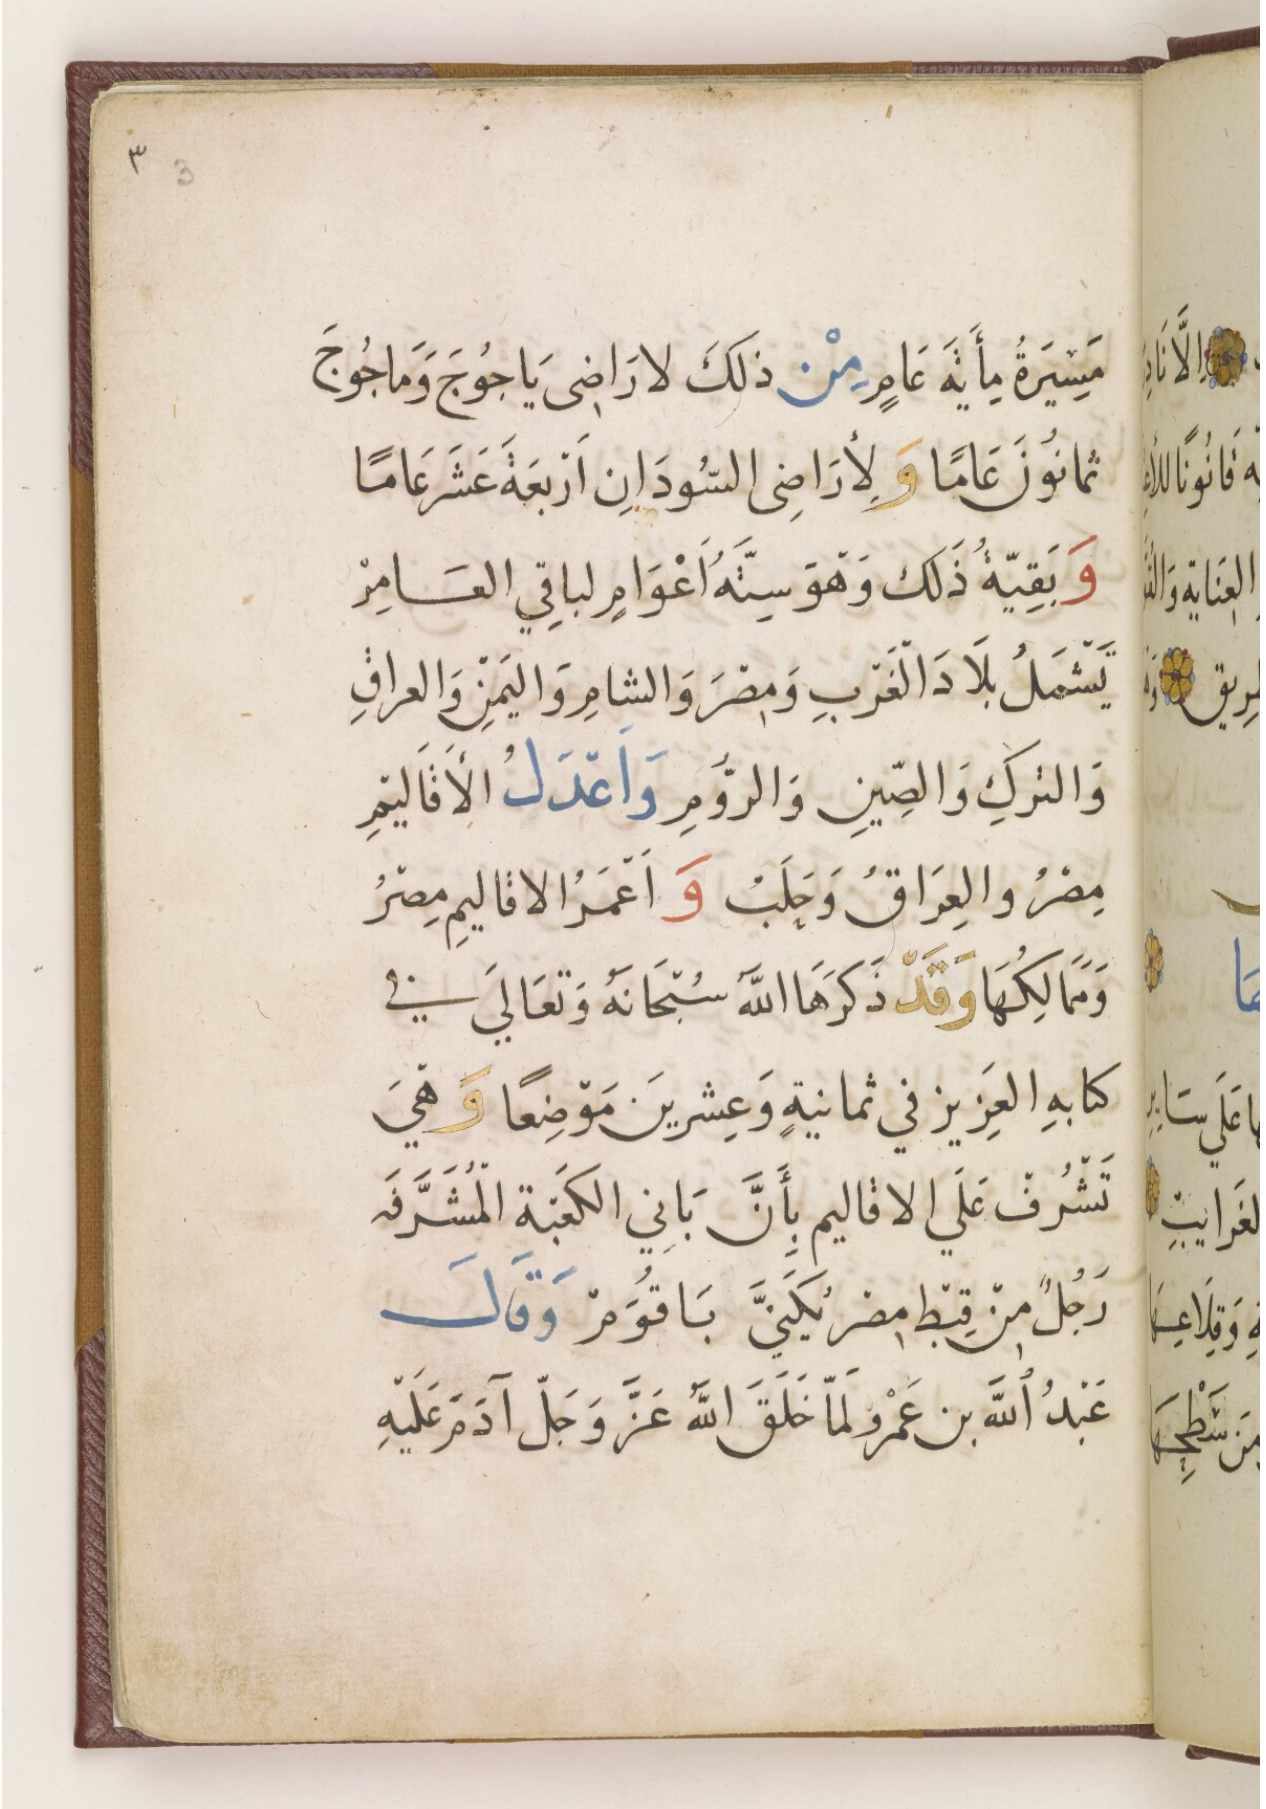 ٣ 3
مَسِيَرةُ مِأَيةَ عَامٍ مِنْ ذلَكَ لارَاضِى يَاجوُجَ وَمَاجُوجَ
ثمانوُنَ عَامًا وَ لِأرَاضِى السّودَانِ اَرْبعَةَ عَشَرَ عَامًا
وَ بَقِيّةُ ذَلك وَهْوَ سِتَّةُ اَعْوَامٍ لباقِي العَـامِرْ
تَشْمَلُ بلَادَ الْغَرْبِ وَمِصْرَ وَالشامِ وَاليَمَنِ وَالعراقِ
وَالتركِ وَالصِّينِ وَالرّومِ وَاَعْدَلُ الأَقَاليْمِ
مِصْرُ والعِرَاقُ وَحَلَبْ وَ اَعْمَرُ الاقاليمِ مِصْرُ
وَممَالِكُهَا وَقَدْ ذَكرَهَا اللهُ سُبْحَانَهُ وَتعَاليَ في
كتابهِ العَزِيزِ في ثمانيةٍ وَعِشرينَ مَوْضِعًا وَ هْيَ
تَشْرُفْ عَلَي الاقاليم بِأَنَّ بَانِي الكَعْبَة الْمُشَرَّفَه
رَجُلٌ مِنْ قِبْط مِصْر يُكَنيَّ بَاقوُمَ وَقَالَ
عَبْدُ ٱللَّه بن عَمْرو لَمَاّ خَلَقَ اللهُ عَزَّ وَجَلّ آدَمَ عَلَيْهِ